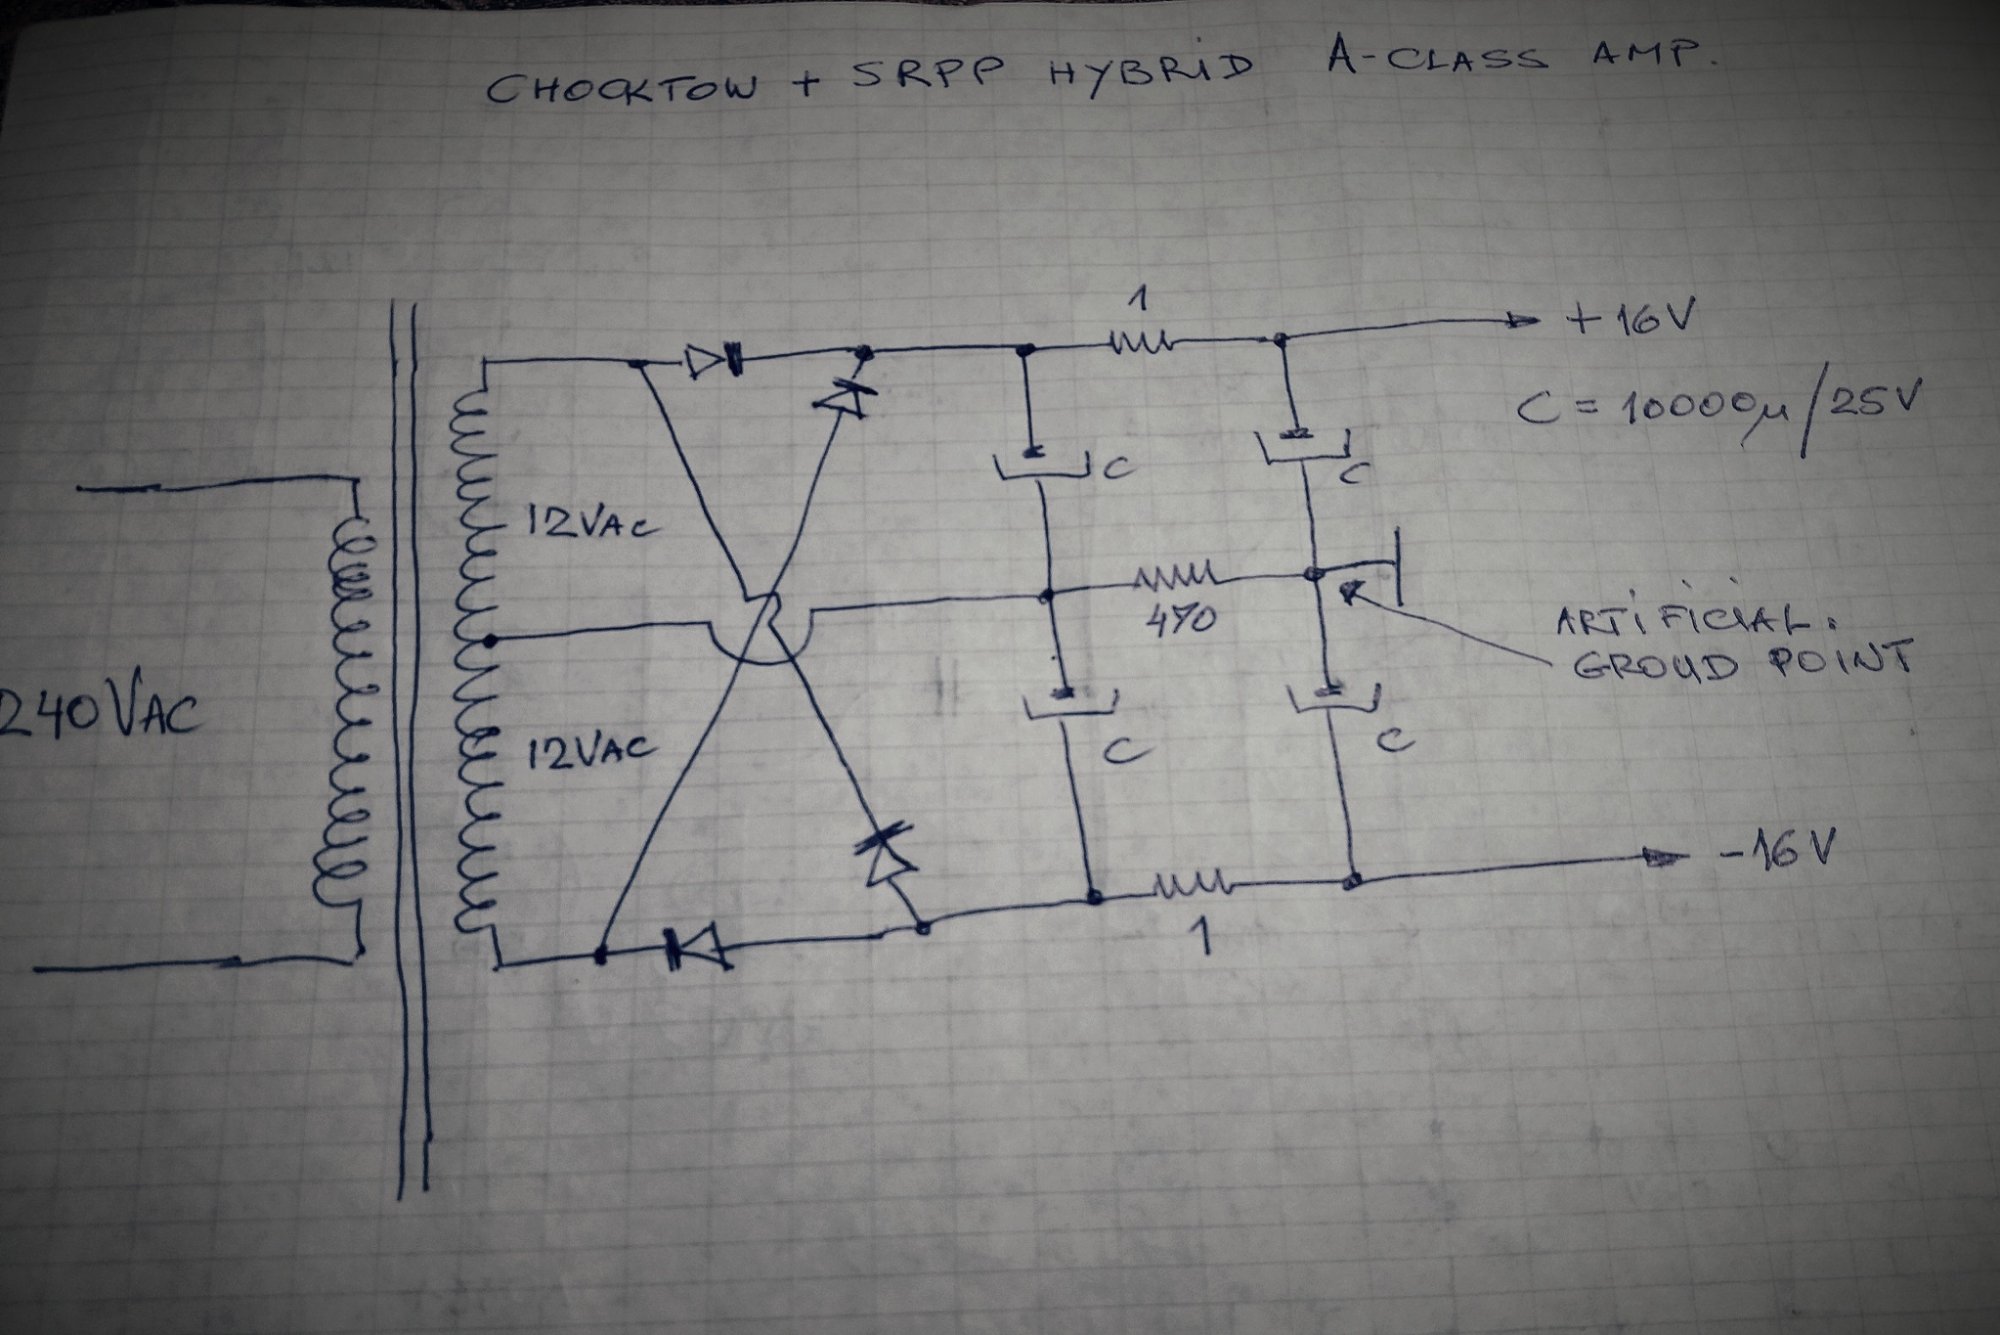 CHOCKTOW + SRPP HYBRID A-CLASS AMP.
1
+16V
C = 10000µ/25V
C
C
12VAC
470
ARTIFICIAL.
GROUD POINT
240VAC
12VAC
C
C
-16V
1